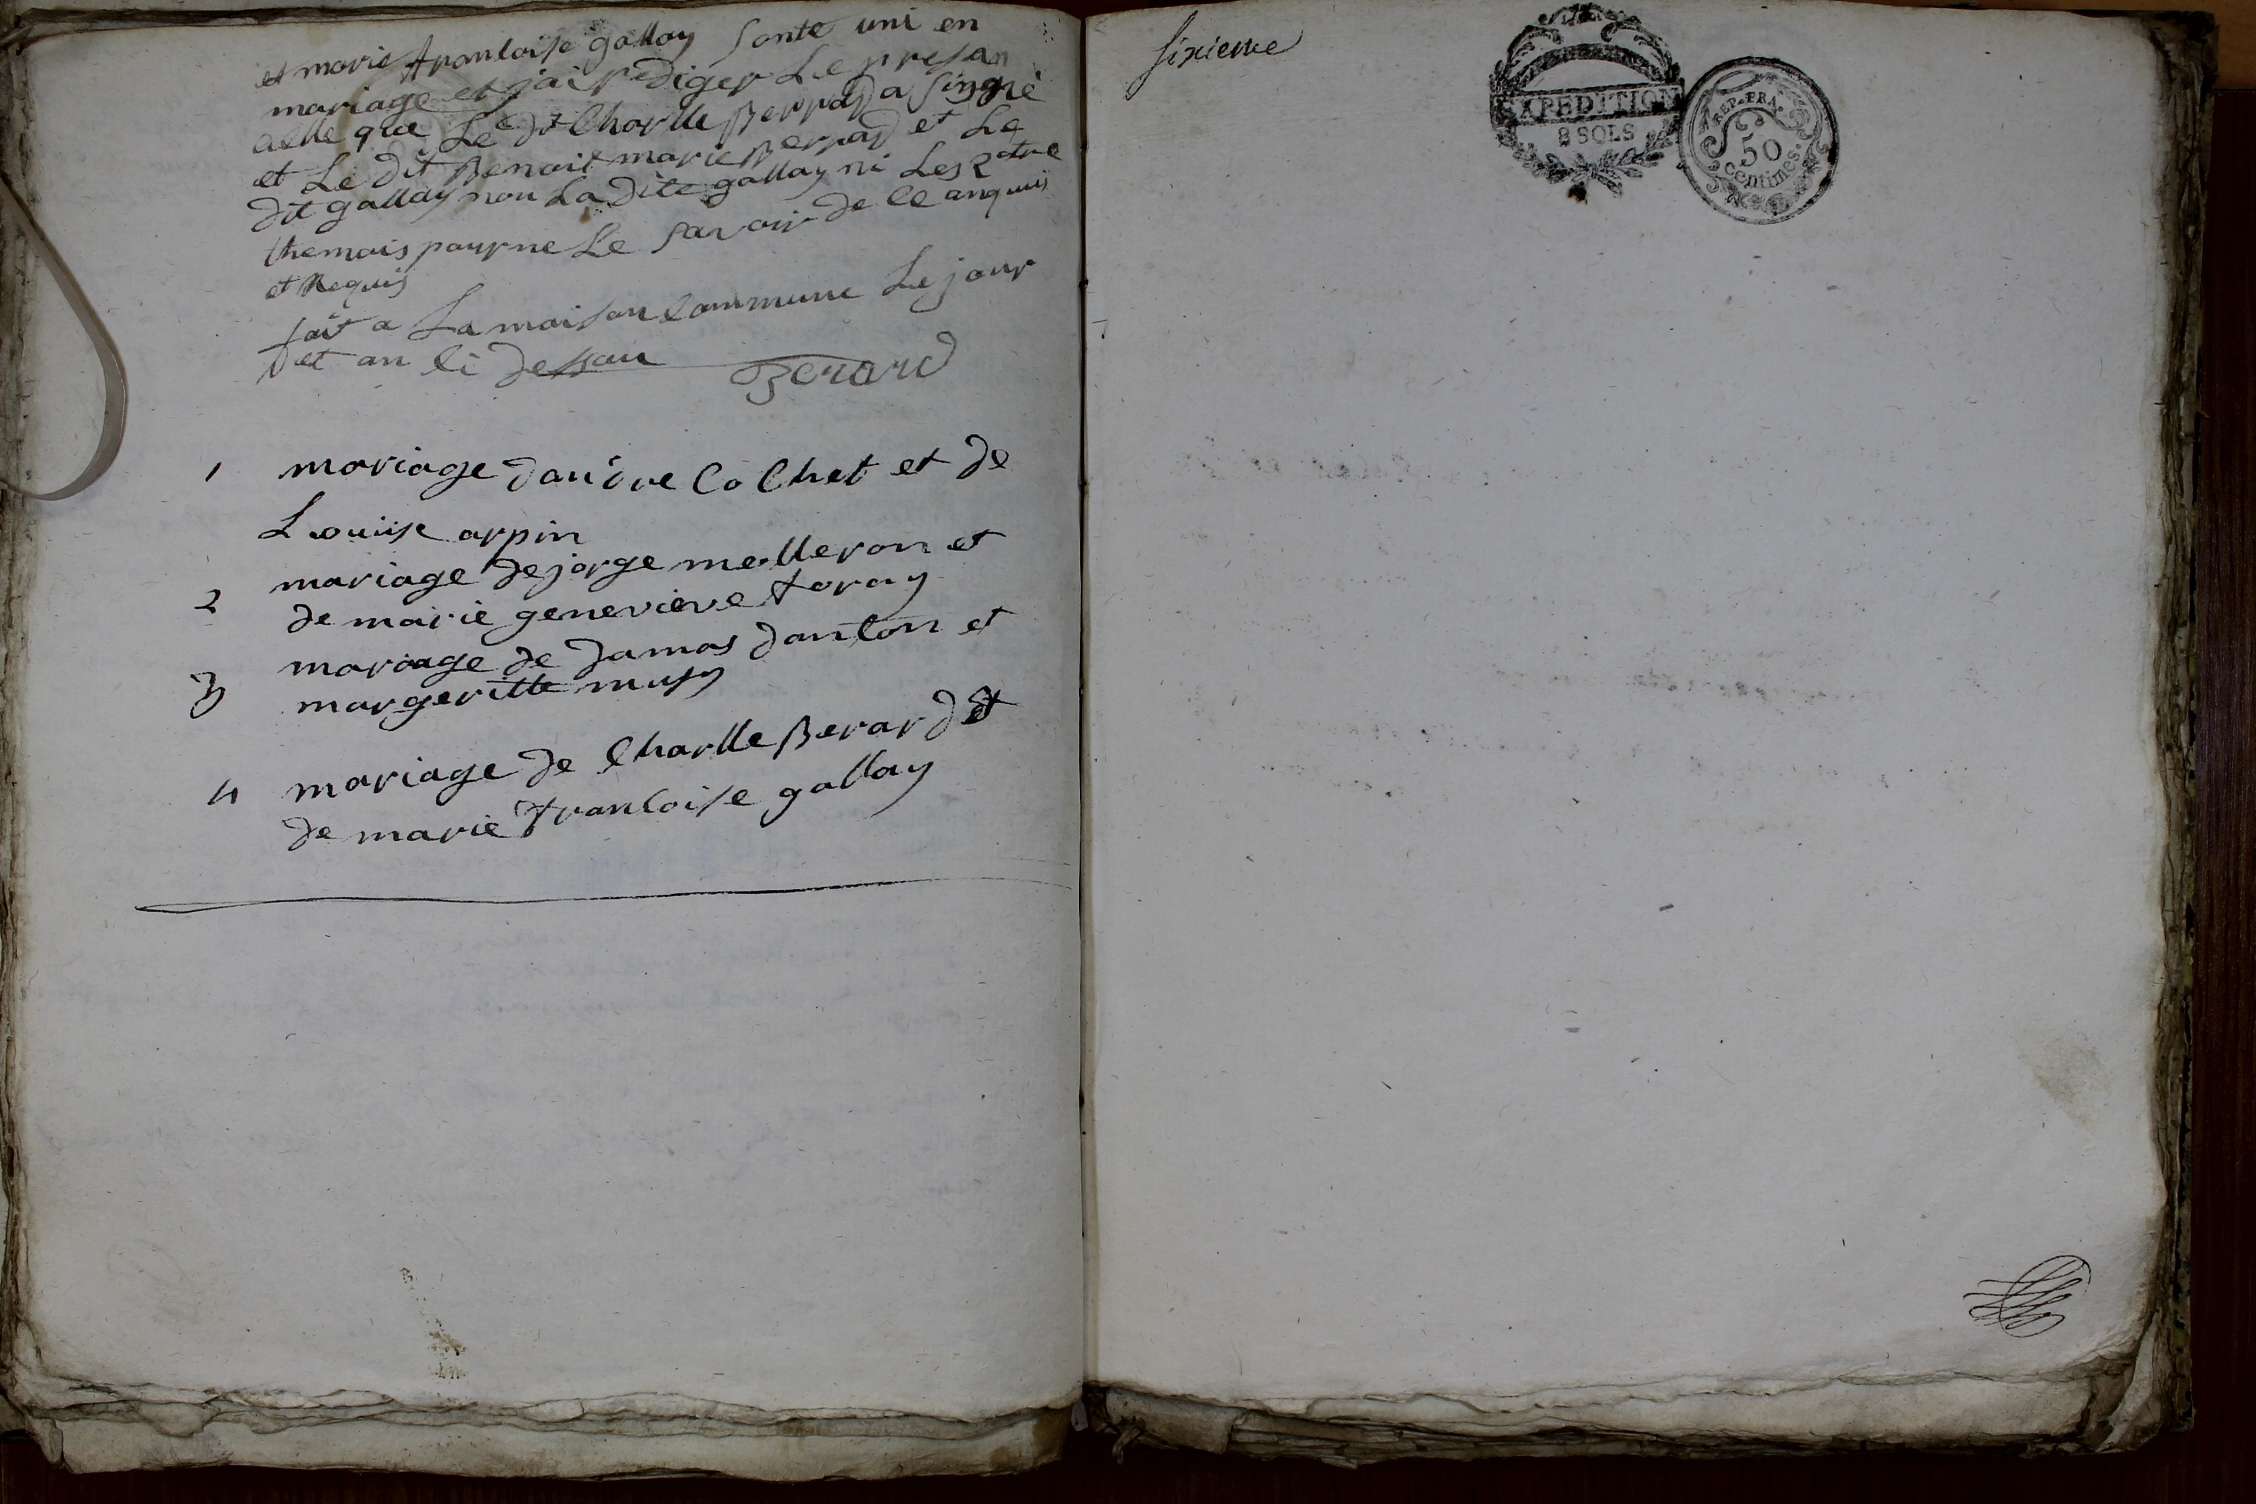 et marie francoise gallay sonte uni en
mariage et jai rediger Le presan
aette que Le dt Charlle Berrard a singné
et Le dit Benoit marie Berrard et Le
dit gallay non La dite gallay ni Les 2 otre
themois pour ne Le savoir de ce anquis
et Requis
fait a La maison commune Le jour
et an ci dessau
Berard
1 mariage dandre Cochet et de
Louise arpin
2 mariage de jorge molleron et
de marie genevieve foray
3 mariage de damas danton et
margeritte musy
4 mariage de Charlle Berard et
de marie francoise gallay
sixieme
EXPEDITION
8 SOLS
REP. FRA.
50
centimes.